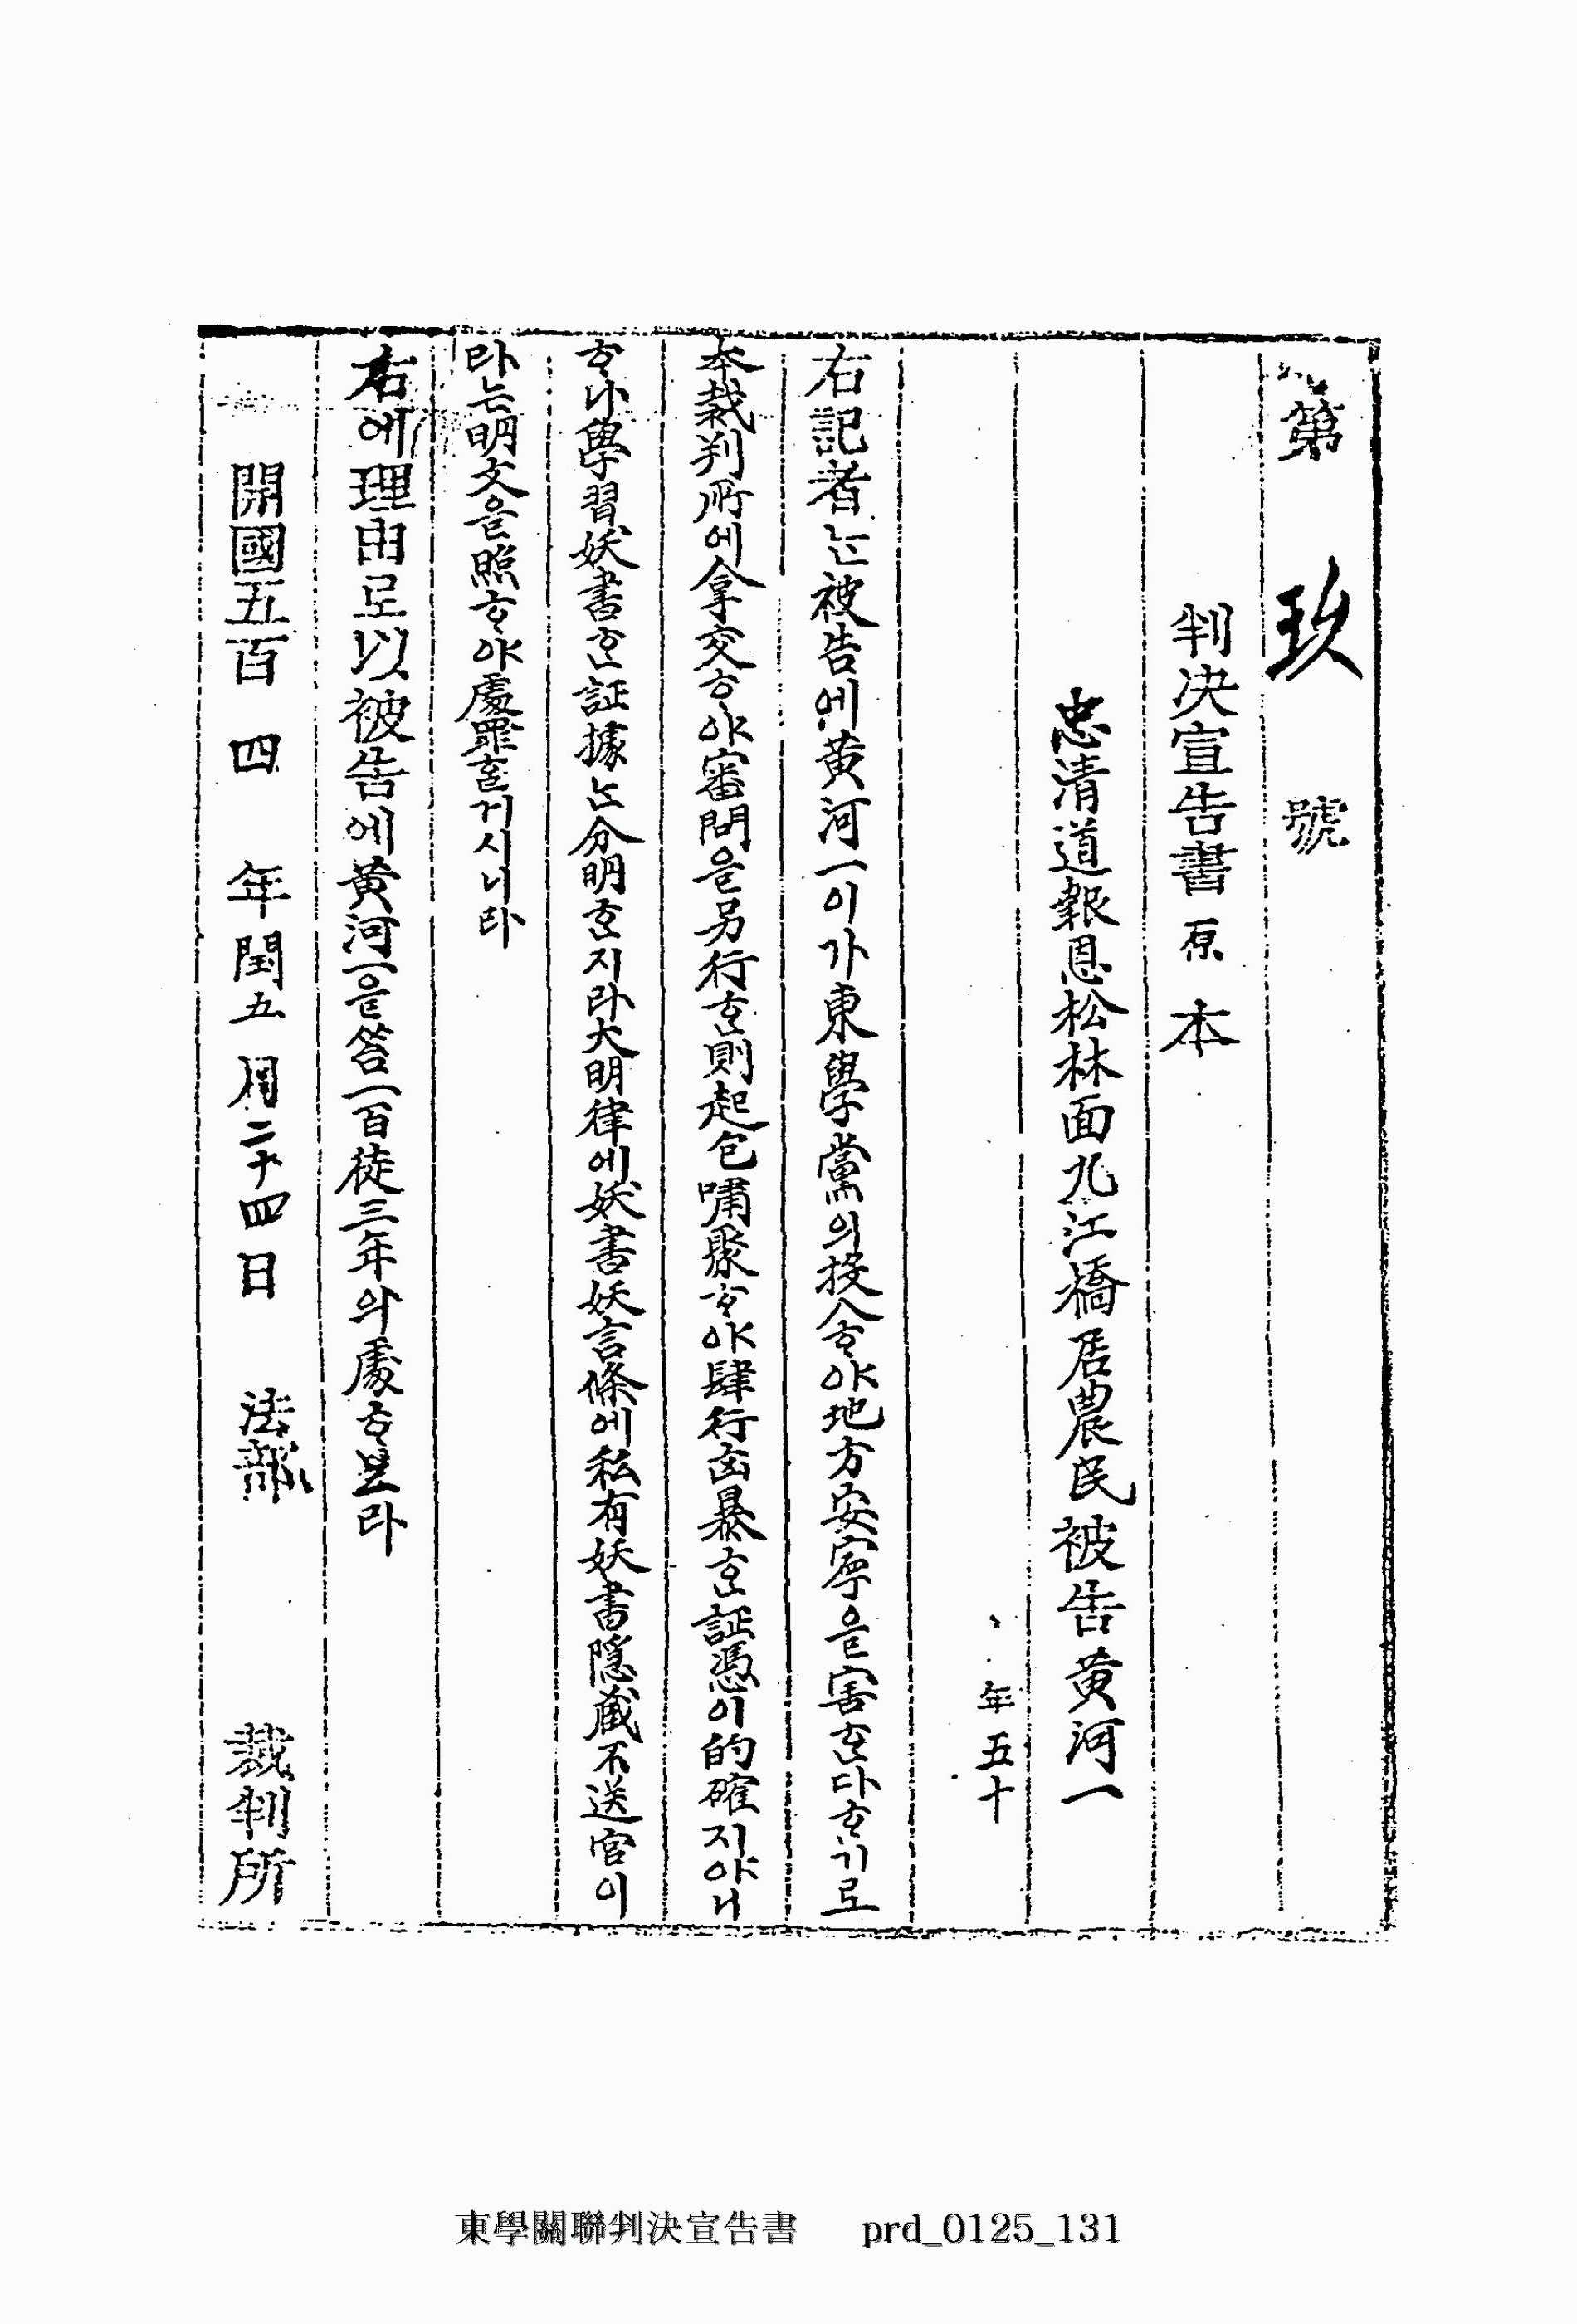 第 玖 號
判决宣告書 原本
忠清道報恩松林面九江橋居農民被告黄河一
年五十
右記者ᄂᆞᆫ被告에黄河一이가東學黨의投入ᄒᆞ야地方安寧을害ᄒᆞᆫ다ᄒᆞ기로
本裁判所에拿交ᄒᆞ야審問을另行ᄒᆞᆫ則起包嘯聚ᄒᆞ야肆行㐫暴ᄒᆞᆫ証憑이的確지야니
ᄒᆞ나學習妖書ᄒᆞᆫ証據ᄂᆞᆫ分明ᄒᆞᆫ지라大明律에妖書妖言條에私有妖書隱藏不送官이
라는明文을照ᄒᆞ야處罪ᄒᆞᆯ거시니라
右에理由로以被告에黄河一을笞一百徒三年의處ᄒᆞ노라
開國五百四年閏五月二十四日 法部 裁判所
東學關聯判決宣告書 prd_0125_131